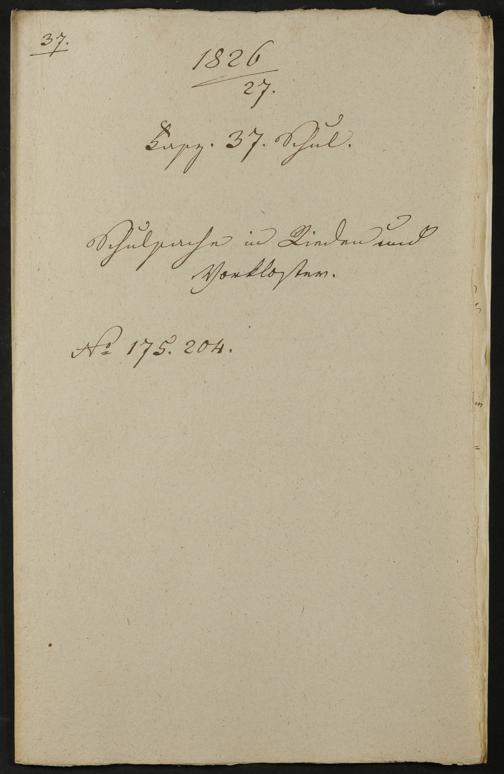 37.
1826
27.
Fasz. 37. Schul.
Schulsache in Rieden und
Vorkloster.
No 175. 204.